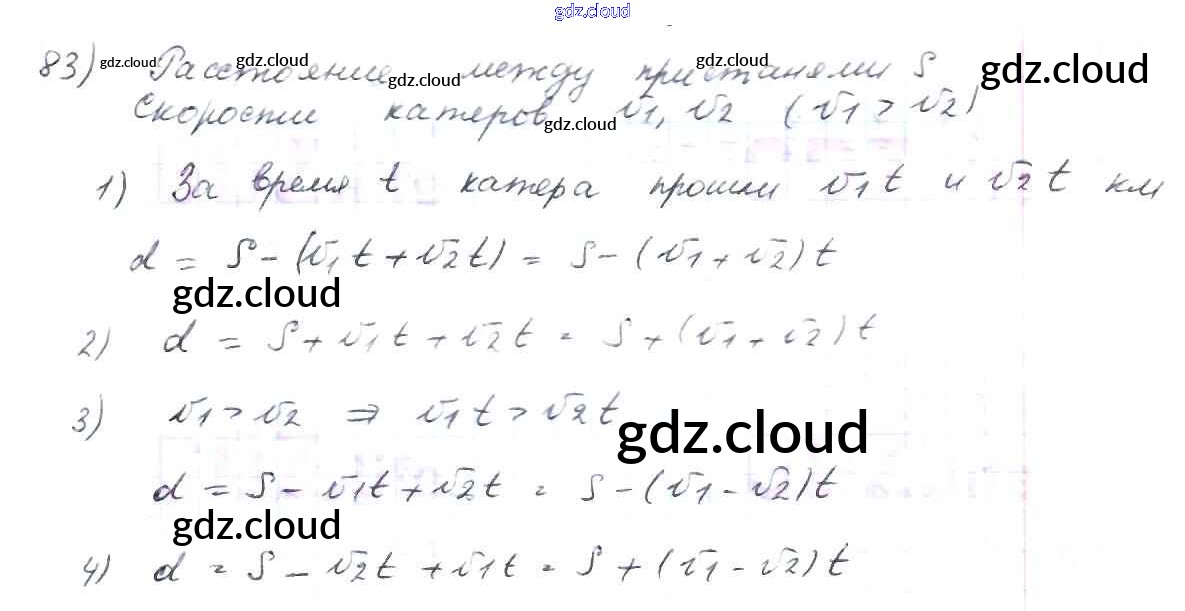 gdz.cloud
83) gdz.cloud Расстояние gdz.cloud между пристанями gdz.cloud S gdz.cloud
gdz.cloud
Скорости катеров v1, v2 (v1 > v2)
gdz.cloud
1) За время t катера прошли v1t и v2t км
d = S - (v1t + v2t) = S - (v1 + v2)t
gdz.cloud
2) d = S + v1t + v2t = S + (v1 + v2)t
3) v1 > v2 ⇒ v1t > v2t
gdz.cloud
d = S - v1t + v2t = S - (v1 - v2)t
gdz.cloud
4) d = S - v2t + v1t = S + (v1 - v2)t